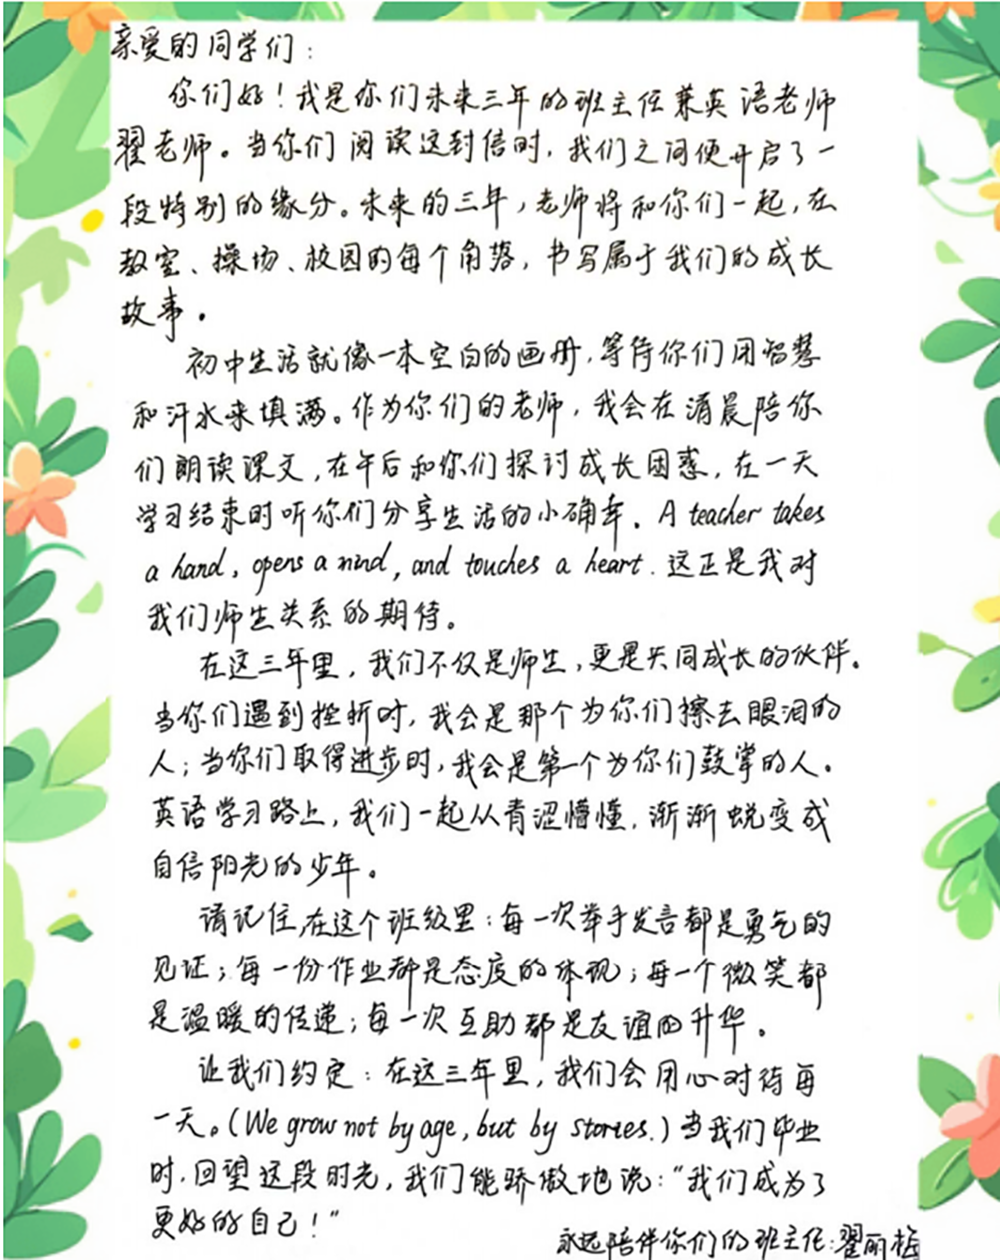 亲爱的同学们:
你们好!我是你们未来三年的班主任兼英语老师
翟老师。当你们阅读这封信时,我们之间便开启了一
段特别的缘分。未来的三年,老师将和你们一起,在
教室、操场、校园的每个角落,书写属于我们的成长
故事。
初中生活就像一本空白的画册,等待你们用智慧
和汗水来填满。作为你们的老师,我会在清晨陪你
们朗读课文,在午后和你们探讨成长困惑,在一天
学习结束时听你们分享生活的小确幸。A teacher takes
a hand, opens a mind, and touches a heart.这正是我对
我们师生关系的期待。
在这三年里,我们不仅是师生,更是共同成长的伙伴。
当你们遇到挫折时,我会是那个为你们擦去眼泪的
人;当你们取得进步时,我会是第一个为你们鼓掌的人。
英语学习路上,我们一起从青涩懵懂,渐渐蜕变成
自信阳光的少年。
请记住,在这个班级里:每一次举手发言都是勇气的
见证;每一份作业都是态度的体现;每一个微笑都
是温暖的传递;每一次互助都是友谊的升华。
让我们约定:在这三年里,我们会用心对待每
一天。(We grow not by age, but by stories.)当我们毕业
时,回望这段时光,我们能骄傲地说:“我们成为了
更好的自己!”
永远陪伴你们的班主任:翟丽梅